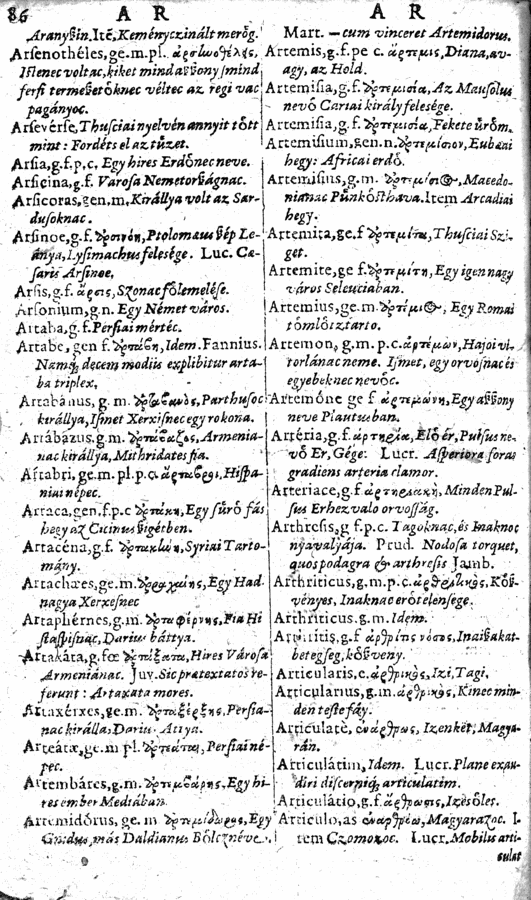 86 A R
Aranyßin, Itē, Keményczinált merőg.
Arsenothéles, ge. m. pl. ἀρσενοθήλες,
Istenec voltac, kiket mind aßßony s mind
ferfi termeßetőknec véltec az regi vac
pagányoc.
Arsevérse, Thusciai nyelvén annyit tőtt
mint: Fordéts el az tűzet.
Arsia, g. f. p. c, Egy hires Erdőnec neve.
Arsicina, g. f. Varosa Nemetorßágnac.
Arsicoras, gen. m, Királlya volt az Sar-
dusoknac.
Arsinoe, g. f. ἀρσινόη, Ptolomaus ßép Le-
ánya, Lysimachus felesége. Luc. Cæ-
saris Arsinoe,
Arsis, g. f. ἄρσις, Szonac főlemelése.
Arsonium, g. n. Egy Német város.
Artaba, g. f. Persiai mértéc.
Artabe, gen f. ἀρτάβη, Idem. Fannius.
Namq; decem modiis explibitur arta-
ba triplex.
Artabánus, g. m. ἀρτάβανὸς, Parthusoc
királlya, Ismet Xerxisnec egy rokona.
Artábazus, g. m. ἀρτάβαζος, Armenia-
nac királlya, Mithridates fia.
Artabri, ge. m. pl. p. c. ἄρταβροι, Hispa-
niai népec.
Artaca, gen. f. p. c ἀρτάκη, Egy sűrő fás
hegy az Cicinus ßigétben.
Artacéna, g. f. ἀρτακίωη, Syriai Tarto-
mány.
Artachæes, ge. m. Egy Had
nagya Xerxesnec
Artaphérnes, g. m. ἀρταφέρνης, Fia Hi
staspisnac, Darius báttya.
Artaxáta, g. fœ ἀρτάξατα, Hires Városa
Armeniánac. Juv. Sic prætextatos re-
ferunt: Artaxata mores.
Artaxérxes, ge. m. ἀρταξέρξης, Persia-
nac királla, Darius Attya.
Arteátæ, ge. m pl. ἀρτεάται, Persiai né-
pec.
Artembáres, g. m. ἀρτεμβάρης, Egy hi-
res ember Mediában.
Artemidórus, ge. m ἀρτεμίδωρος, Egy
Gnidus, más Daldianus Bőlcznéve.
A R
Mart. — cum vinceret Artemidorus.
Artemis, g. f. pe c. ἄρτεμις, Diana, av-
agy, az Hold.
Artemisia, g. f. ἀρτεμισία, Az Mausolus
nevő Cariai király felesége.
Artemisia, g. f. ἀρτεμισία, Fekete űrőm.
Artemisium, gen. n. ἀρτεμίσιον, Eubæai
hegy: Africai erdő.
Artemisius, g. m. ἀρτεμίσιος, Macedo-
nianac Pűnkősthava. Item Arcadiai
hegy.
Artemita, ge. f ἀρτεμίτα, Thusciai Szi-
get.
Artemite, ge f. ἀρτεμίτη, Egy igen nagy
város Seleuciaban.
Artemius, ge. m. ἀρτέμιος, Egy Romai
tőmlőtztarto.
Artemon, g. m. p. c. ἀρτέμων, Hajoi vi-
torlánac neme. Ismet, egy orvosnac és
egyebeknec nevőc.
Artemóne ge f ἀρτεμώνη, Egy aßßony
neve Plautusban.
Artéria, g. f. ἀρτηρία, Elő ér, Pulsus ne-
vő Er, Gége: Lucr. Asperiora foras
gradiens arteria clamor.
Arteriace, g. f ἀρτηριακὴ, Minden Pul-
sus Erhez valo orvosság.
Arthresis, g f. p. c. Tagoknac, és Inaknac
nyavalyája. Prud. Nodosa torquet,
quos podagra & arthresis Jamb.
Arthriticus, g. m. p. c. ἀρθριτικὸς, Kőß-
vényes, Inaknac erőtelensége.
Arthriticus. g. m. Idem.
Arthritis, g. f ἀρθρίτις νόσος, Inaißakat-
betegseg, kőßveny.
Articularis, e. ἀρθρικὸς, Izi, Tagi.
Articularius, g. m. ἀρθρικὸς, Kinec min-
den teste fáy.
Articulatè, ἐνάρθρως, Izenkét, Magya-
rán.
Articulátim, Idem. Lucr. Plane exau-
diri discerniq; articulatim.
Articulátio, g. f. ἄρθρωσις, Izesőles.
Articulo, as ἐναρθρέω, Magyarazoc. I-
tem Czomozoc. Lucr. Mobilis arti-
culat